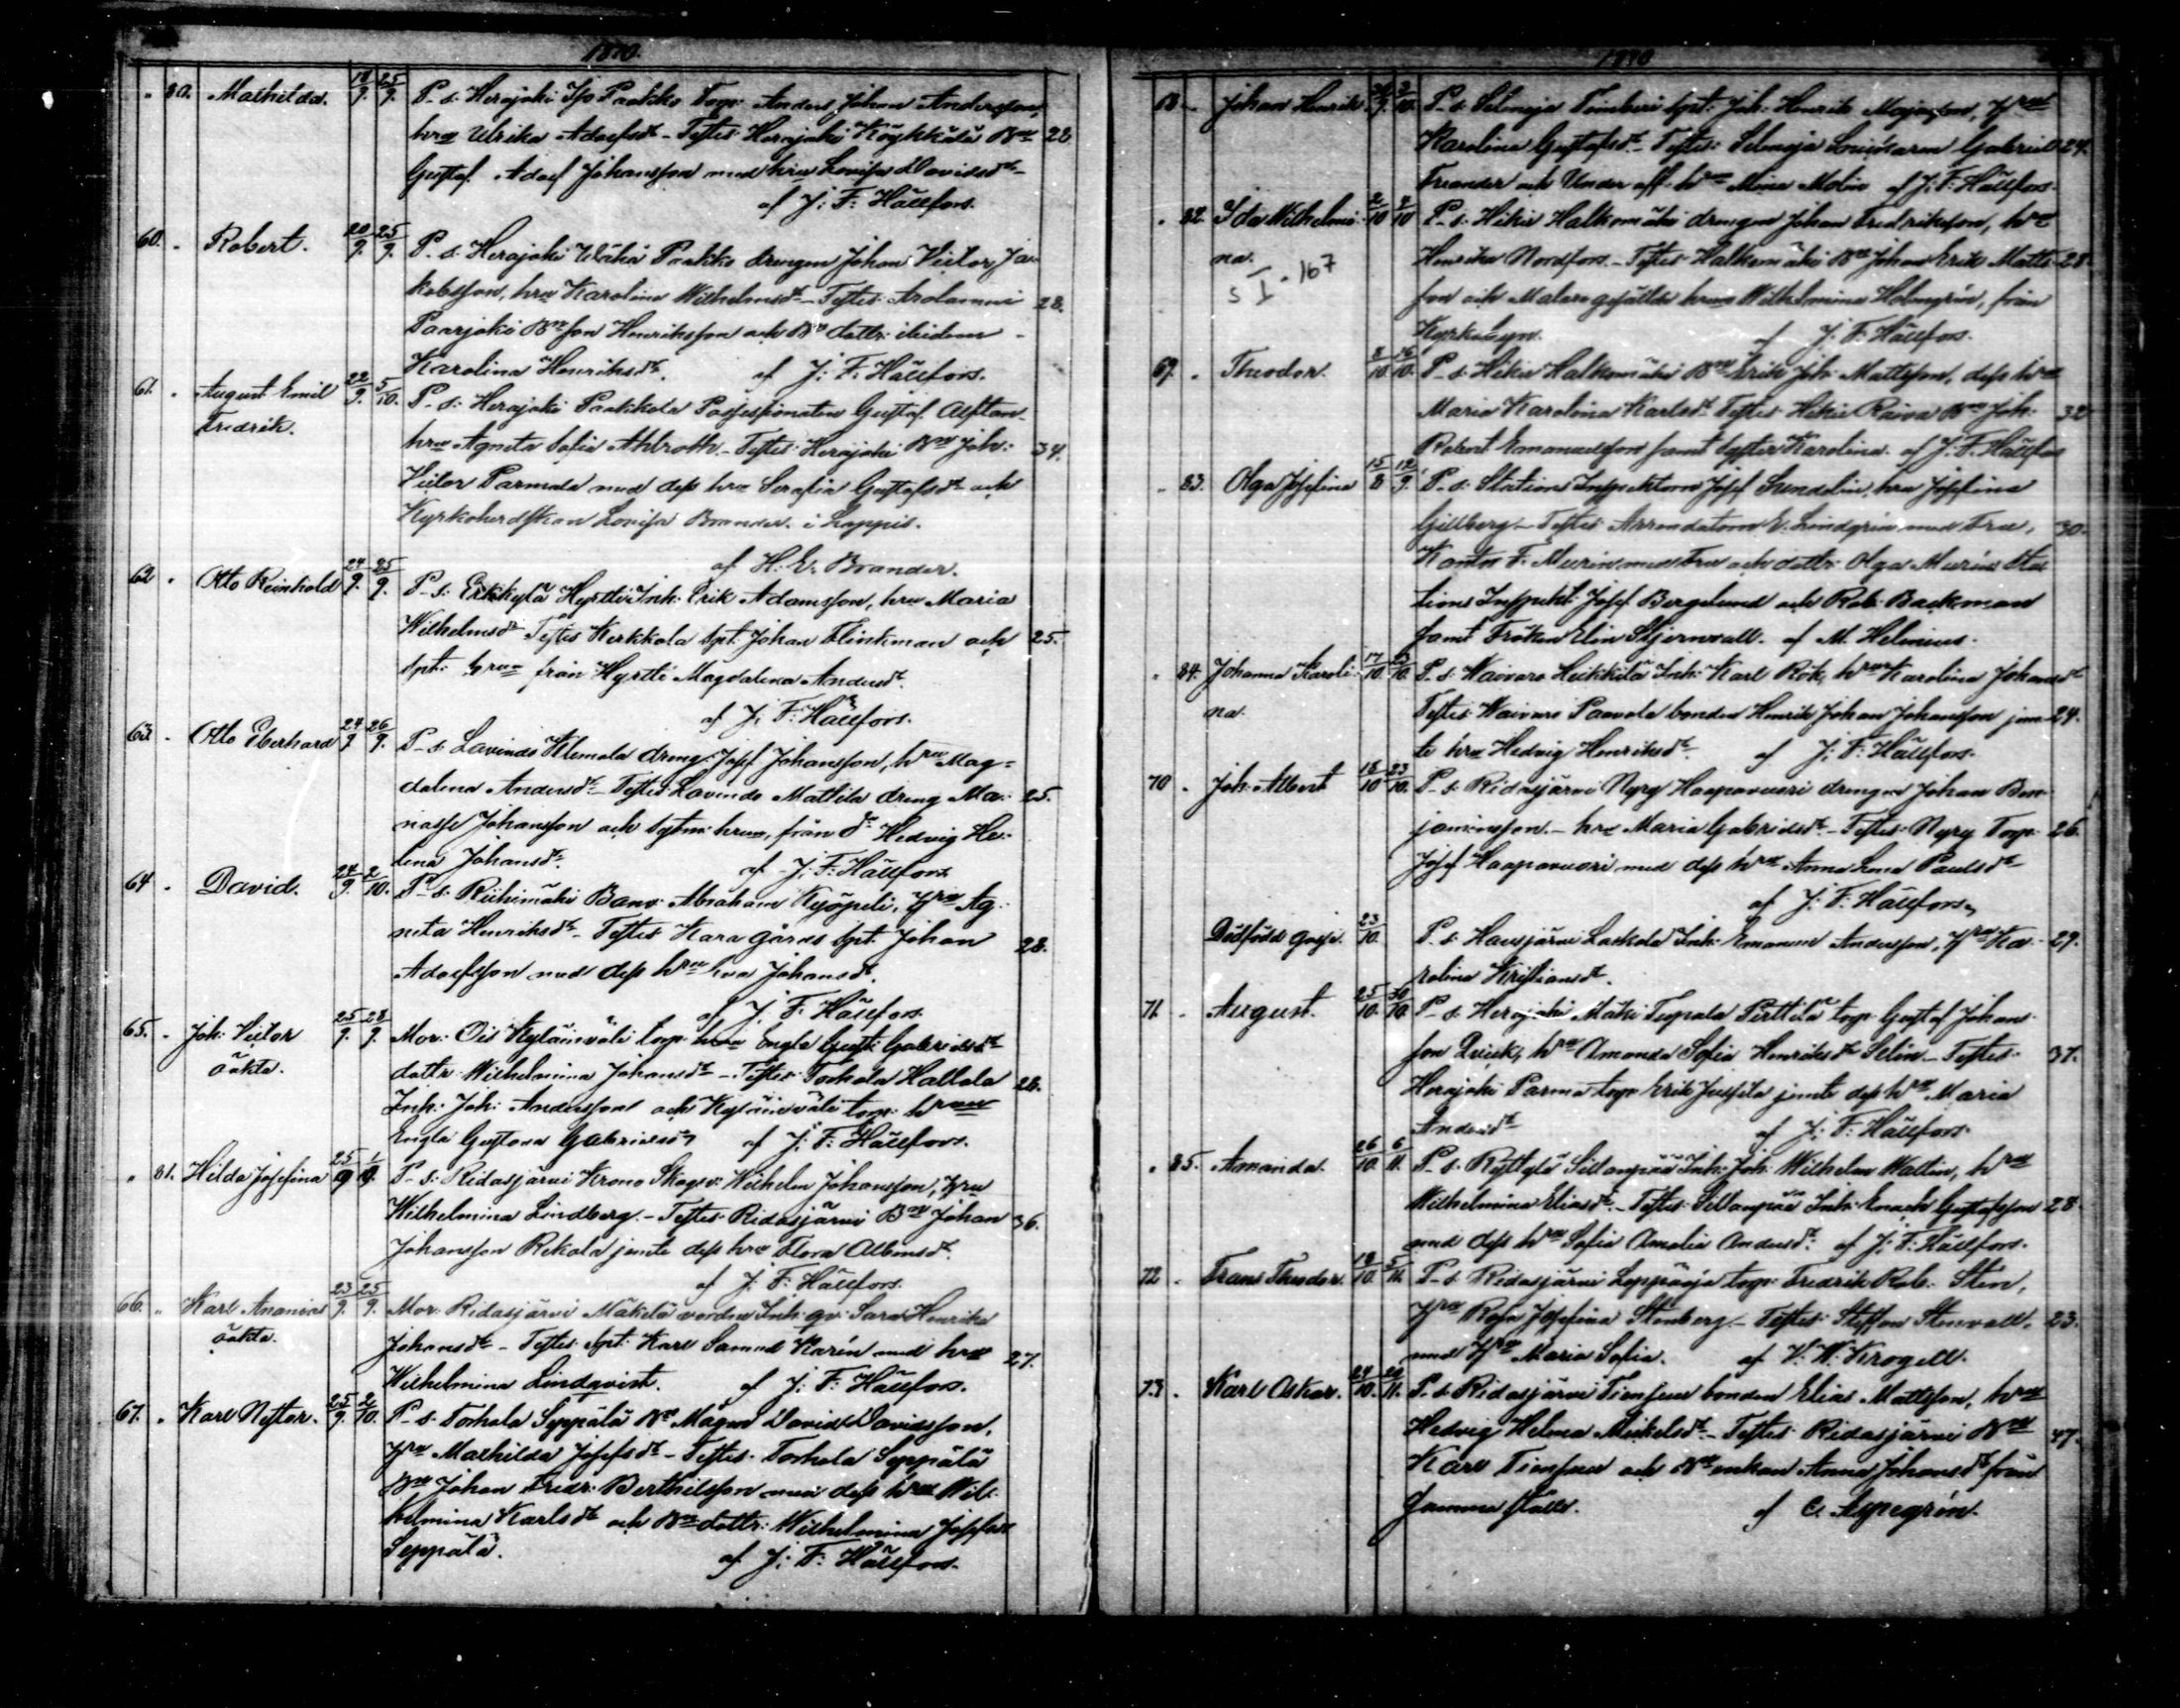 1870.
" 80. Mathilda. 18/9. 25/9. P. s. Herajoki Iso Paakko Torp. Anders Johan Andersson,
hru Ulrika Adolfsdr - Testes: Herajoki Köykkälä Bn 28
Gustaf Adolf Johansson med hru Lovisa Davidsdr -
af J. F. Hällfors.
60. " Robert. 20/9. 25/9. P. s. Herajoki Wähä Paakko drengen Johan Victor Ja-
kobsson, hru Karolina Wilhelmsdr - Testes: Arolammi 28.
Paarjoki Bn son Henriksson och Bn dottr: ibidem -
Karolina Henriksdr. af J. F. Hällfors.
61. " August Emil 22/9. 5/10. P. s. Herajoki Paakkola Possessionaten Gustaf Alftan
Fredrik. hru Agneta Sofia Ahlroth - Testes: Herajoki Bn Joh: 34.
Victor Parmala med dess hru Serafia Gustafsdr och
Kyrkoherdskan Lovisa Brander i Lappis.
af H. E. Brander.
62 " Otto Reinhold 24/9. 25/9. P. s. Erkkylä Hyrtti Inh: Erik Adamsson, hru Maria
Wilhelmsdr Testes Kerkkola Spt. Johan Flinkman och 25.
Spt: hru från Hyrtti Magdalena Andersdr.
af J. F. Hällfors.
63. " Otto Eberhard 24/9 26/9. P. s. Lavinde Klemola dreng. Josef Johansson, hru Mag=
dalena Andersdr - Testes Lavinde Mattila dreng Ma- 25.
nasse Johansson och Sytm: hru, från do Hedvig He-
lena Johansdr. af J. F. Hällfors
64 " David. 24/9. 2/10. P. s. Riihimäki Banv. Abraham Kyöpeli, Hru Ag-
neta Henriksdr - Testes Kara gårds Spt. Johan 28.
Adolfsson med dess hru Eva Johansdr.
af J. F. Hällfors
65. " Joh. Victor 25/9. 28/9. Mor: Ois Kylänväli torp. hru Engla Gust: Gabrielsdr
oäkta. dottr: Wilhelmina Johansdr - Testes Torhola Hallola 28.
Inh: Joh: Andersson och Kylänväli torp. hru
Engla Gustava Gabrielsdr af J. F. Hällfors.
" 81. Hilda Josefina 25/9 1/10. P. s. Ridasjärvi Krono Skogsv: Wilhelm Johansson, Hru
Wilhelmina Lindberg - Testes Ridasjärvi Bn Johan 36.
Johansson Rekola jemte dess hru Flora Albinsdr.
af J. F. Hällfors.
66. " Karl Ananias 23/9. 25/9. Mor. Ridasjärvi Mäkelä varden Inh. qv: Sara Henrika
oäkta. Johansdr - Testes Spt. Karl Samuel Karin med hru 27.
Wilhelmina Lindqvist. af J. F. Hällfors.
67. " Karl Nestor. 25/9. 2/10. P. s. Torhola Seppälä Bn Mågen David Davidsson,
Hru Mathilda Josefsdr - Testes Torhola Seppälä
Bn Johan Fredr. Berthilsson med dess hru Wil-
helmina Karlsdr och Bn dottr: Wilhelmina Josefsdr
Seppälä. af J. F. Hällfors.
1870
68 - Johan Henrik 9. 10. P. s. Selänoja Timberi Spt. Joh. Henrik Majasson, Hru
Karolina Gustafsdr - Testes: Selänoja Gabriel 24.
och Under off. hru Mina Molin af J. F. Hällfors
" 82. Ida Wilhelmi- 2/10 9/10 P. s. Hikiä Halkomäki drengen Johan Fredriksson, hru
na. Henrika Nordfors - Testes Halkomäki Bn Johan Erik Matts- 28
S I. 167 son och Malare gesällen hru Wilhelmina Holmgrén, från
Kyrkobyn. af J. F. Hällfors.
69. " Theodor. 8/10. 16/10. P. s. Hikiä Halkomäki Bn Erik Joh: Mattsson, dess hru
Maria Karolina Karlsdr Testes Hikiä Raiva Bn Joh. 32
Robert Emanuelsson samt syster Karolina. af J. F. Hällfors
" 83. Olga Josefina 15/8 12/9. P. s. Stations Inspektorn Josef Sundelin, hru Josefina
Gillberg - Testes Arrendatorn E. Lindgrén med Fru, 30.
Kantor F. Meurin med Fru och dottr: Olga Meurin Sta
tions Inspekt: Josef Bergelund och Rob. Backman
samt Fröken Elin Stjernvall. af M. Helenius.
" 84. Johanna Karoli- 17/10. 23/10. P. s. Waivaro Heikkilä Inh: Karl Rök, hru Karolina Johansdr
na. Testes Waivaro Paavola bonden Henrik Johan Johansson jem- 24.
te hru Hedvig Henriksdr. af J. F. Hällfors.
70 " Joh. Albert 18/10 23/10. P. s. Ridasjärvi Nyry Haapavuori drengen Johan Ben-
jaminsson - hru Maria Gabrielsdr - Testes: Nyry Torp. 26.
Josef Haapavuori med dess hru Anna Lena Paulsdr
af J. F. Hällfors,
Dödfödd gosse. 23/10. P. s. Hausjärvi Laskola Inh: Emanuel Andersson, Hru Ka- 29.
rolina Kristiansdr.
71. " August. 25/10. 30/10. P. s. Herajoki Mäki Tupala Perttilä torp. Gustaf Johans-
son Qvick, hru Amanda Sofia Henriksdr Selin - Testes 37.
Herajoki Parma torp. Erik Jussila jemte dess hru Maria
Andersdr af J. F. Hällfors.
" 85. Amanda. 26/10. 6/11. P. s. Ryttylä Sillanpää Inh: Joh: Wilhelm Wallin, hru
Wilhelmina Eliasdr - Testes: Sillanpää Inh: Enoch Gustafsson 28
med dess hru Sofia Amalia Andersdr. af J. F. Hällfors.
72 " Frans Theodor. 18/10. 5/11. P. s. Ridasjärvi Leppäoja torp. Fredrik Rob: Sten,
Hru Rosa Josefina Stenberg - Testes Staffan Stenvall, 23.
med Hru Maria Sofia. af V. W. Krogell.
73. " Karl Oskar. 24/10. 20/11. P. s. Ridasjärvi Tiensuu bonden Elias Mattsson, hru
Hedvig Helena Mickelsdr - Testes Ridasjärvi Bn 47.
Karl Tiensuu och Bn enkan Anna Johansdr från
samma ställe. af C. Aspegrén.